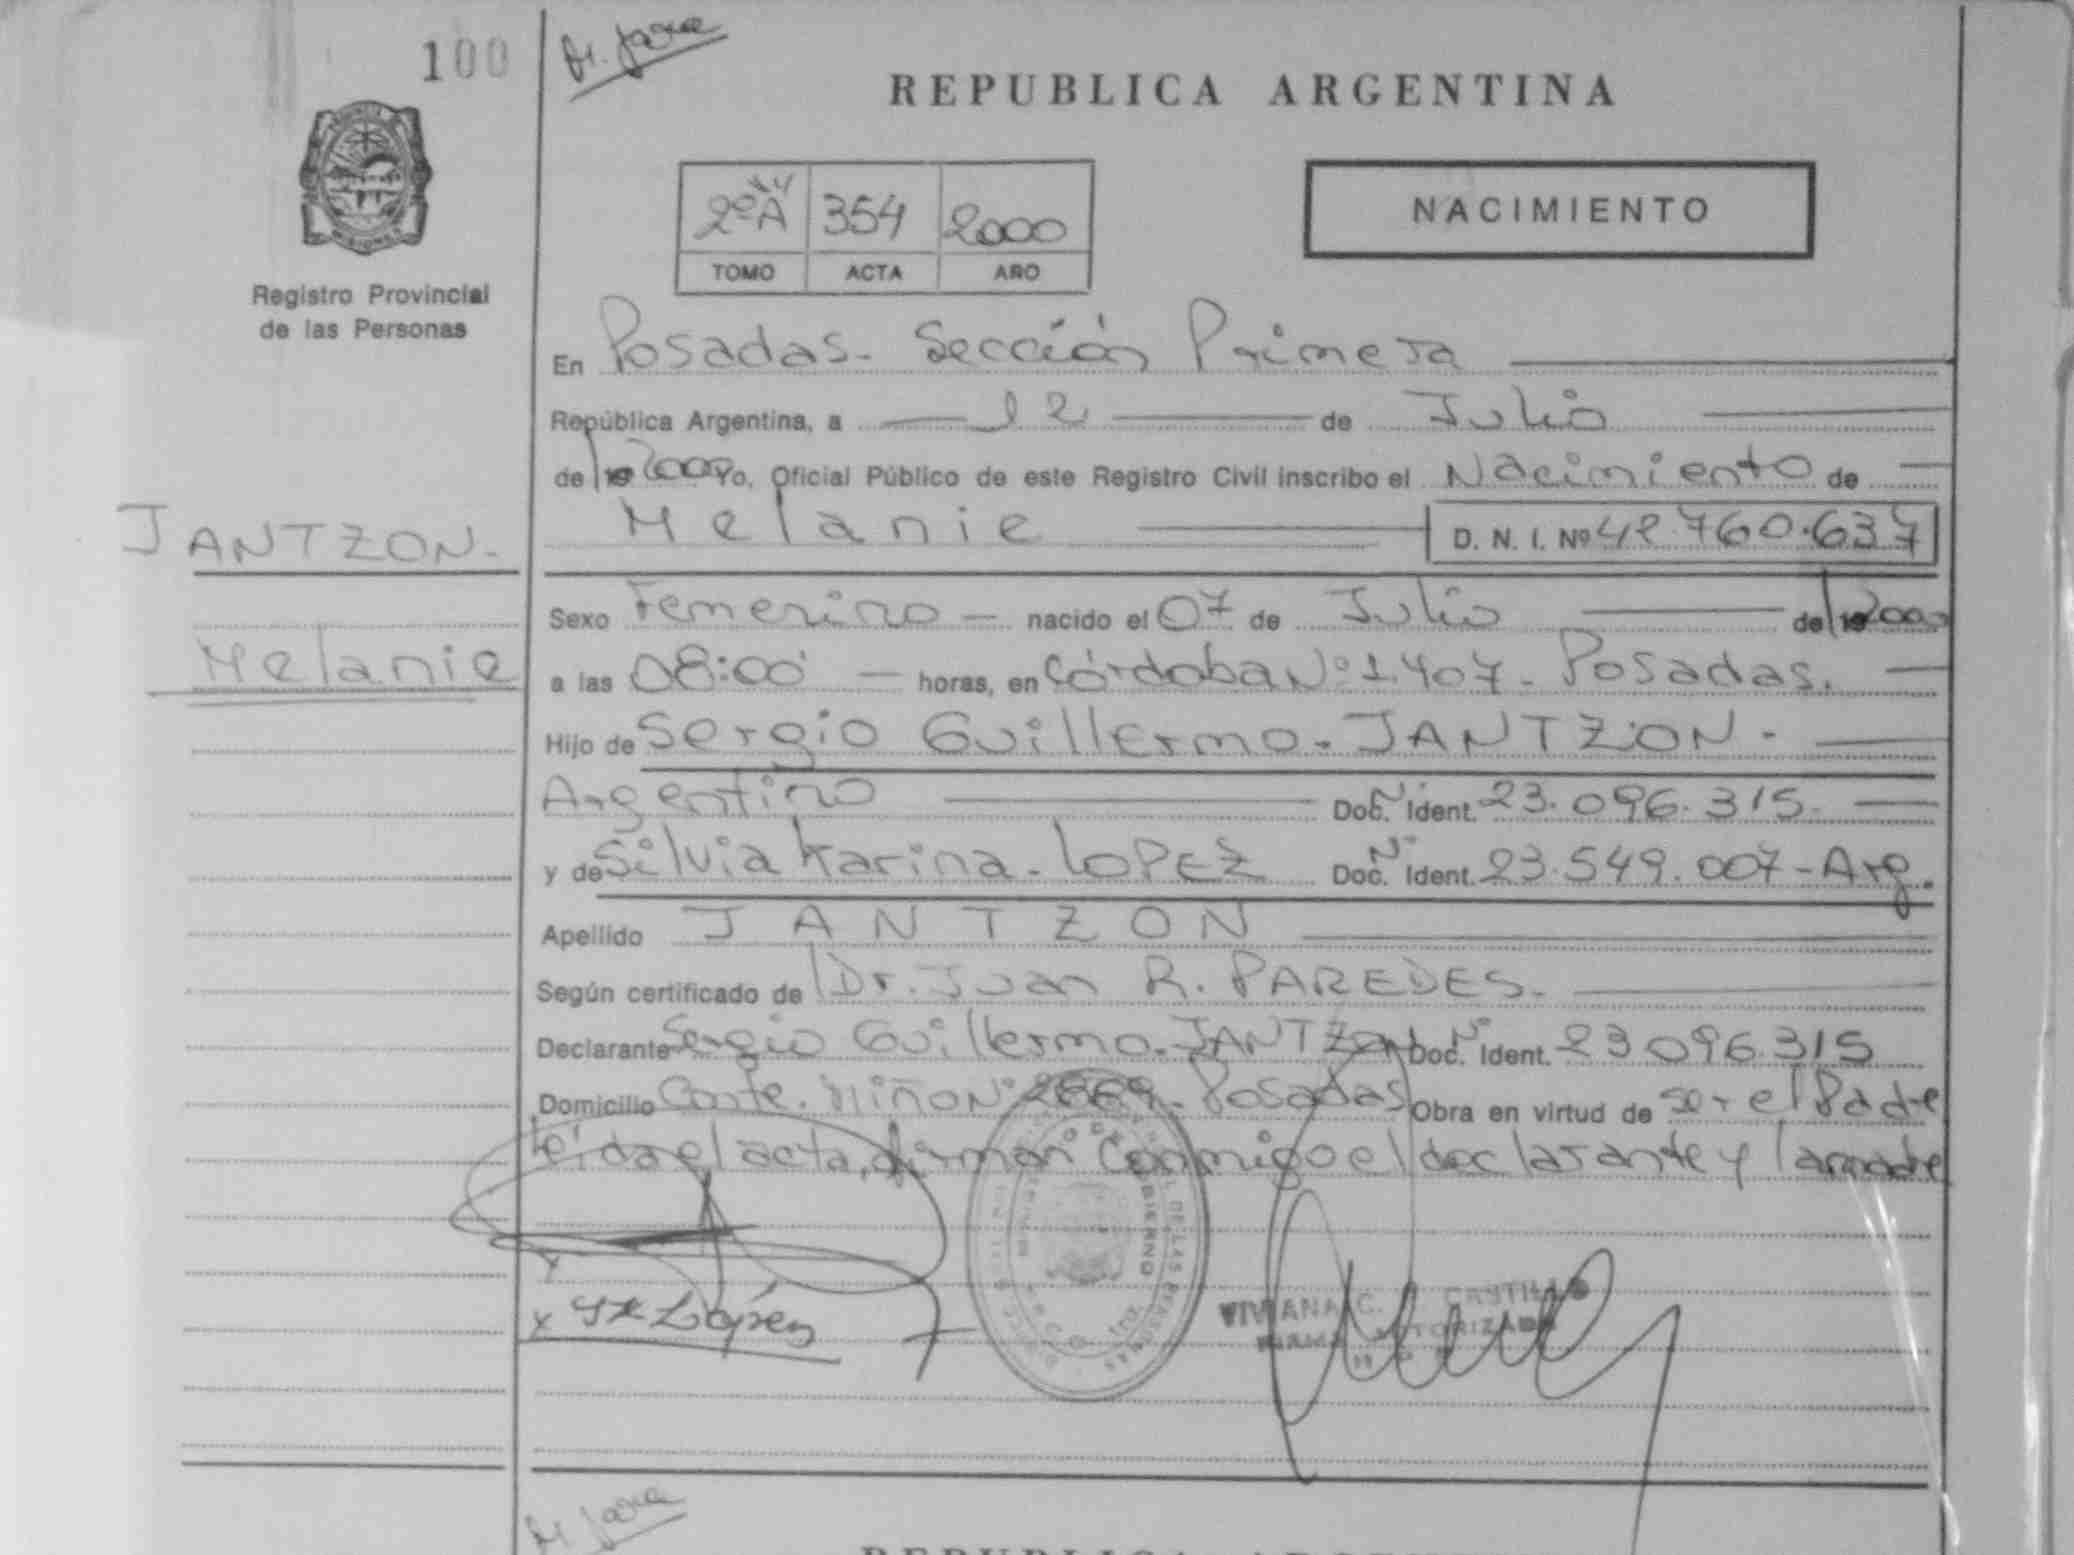 100
REPUBLICA ARGENTINA
2ºA 354 2000
TOMO ACTA AÑO
NACIMIENTO
MISIONES
Registro Provincial
de las Personas
En Posadas - Sección Primera
República Argentina, a 12 de Julio
de 19 2000 Yo, Oficial Público de este Registro Civil inscribo el Nacimiento de
Melanie D. N. I. Nº 42.760.637
JANTZON -
Melanie
Sexo Femenino - nacido el 07 de Julio de 19 2000
a las 08:00 - horas, en Córdoba Nº 1.407 - Posadas.
Hijo de Sergio Guillermo - JANTZON -
Argentino Doc. Nº Ident. 23.096.315 -
y de Silvia Karina - LOPEZ Doc. Nº Ident. 23.549.007 - Arg.
Apellido JANTZON
Según certificado de Dr. Juan R. PAREDES -
Declarante Sergio Guillermo - JANTZON Doc. Nº Ident. 23 096 315
Domicilio Cnte. Miño Nº 2869 - Posadas Obra en virtud de ser el Padre
leída el acta, firman conmigo el declarante y la madre
GOBIERNO
x
x López
VIVIANA C. CASTILLO
FIRMA AUTORIZADA
REPUBLICA ARGENTINA